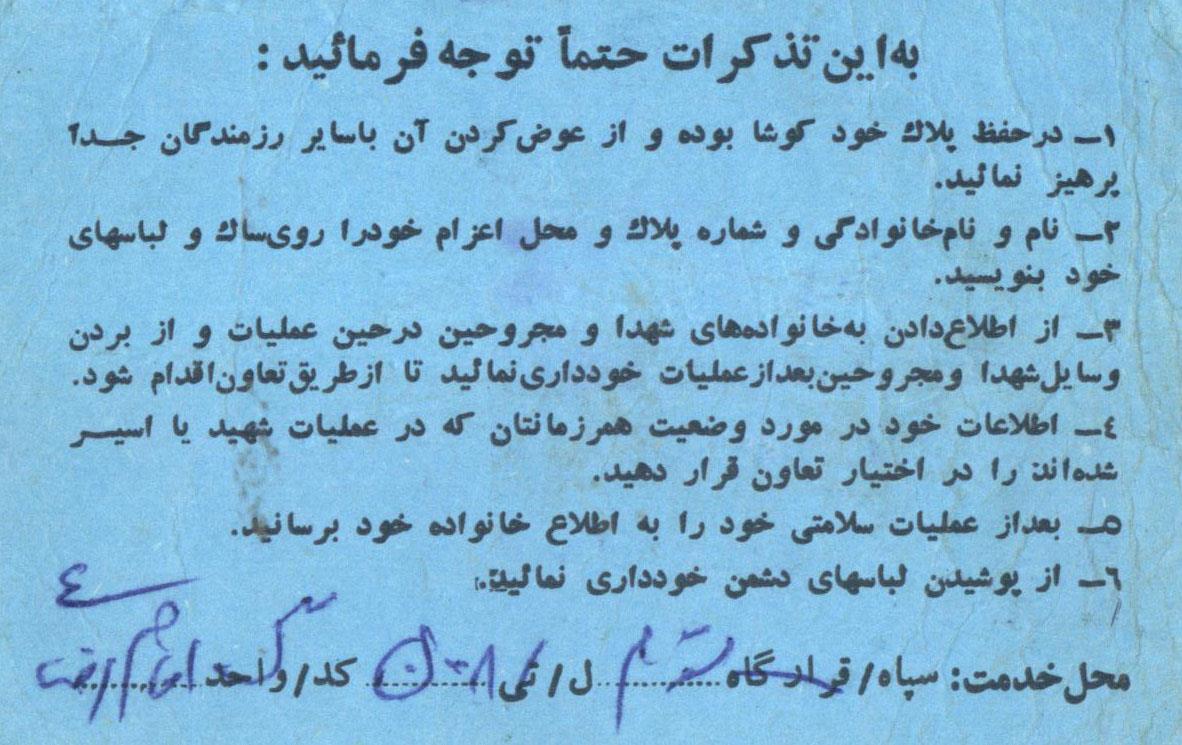 به این تذکرات حتماً توجه فرمائید:
۱ــ در حفظ پلاك خود کوشا بوده و از عوض‌کردن آن باسایر رزمندگان جــدآ
پرهیز نمائید.
۲ــ نام و نام‌خانوادگی و شماره پلاك و محل اعزام خودرا روی‌ساك و لباسهای
خود بنویسید.
۳ــ از اطلاع‌دادن به‌خانواده‌های شهدا و مجروحین درحین عملیات و از بردن
وسایل‌شهدا ومجروحین‌بعدازعملیات خودداری‌نمائید تا ازطریق‌تعاون‌اقدام شود.
٤ــ اطلاعات خود در مورد وضعیت همرزمانتان که در عملیات شهید یا اسیــر
شده‌اند را در اختیار تعاون قرار دهید.
۵ــ بعداز عملیات سلامتی خود را به اطلاع خانواده خود برسانید.
٦ــ از پوشیدن لباسهای دشمن خودداری نمائید.
محل‌خدمت: سپاه/قرارگاه.......... ل/تی.......... کد/واحد..........